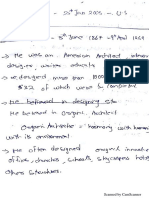 - 25th Jan 2005 - U.S
- 8th June 1867 - 9th April 1959
→ He was an American Architect, interior
designer, writer, educator
→ designed more than 1000
532 of which were completed
→ He believed in designing
He believed in Organic Architect
Organic Architecture → harmony with human
with its environment
→ He often designed organic innovative
offices, churches, schools, skyscrapers, hotels
others structures.
Scanned by CamScanner